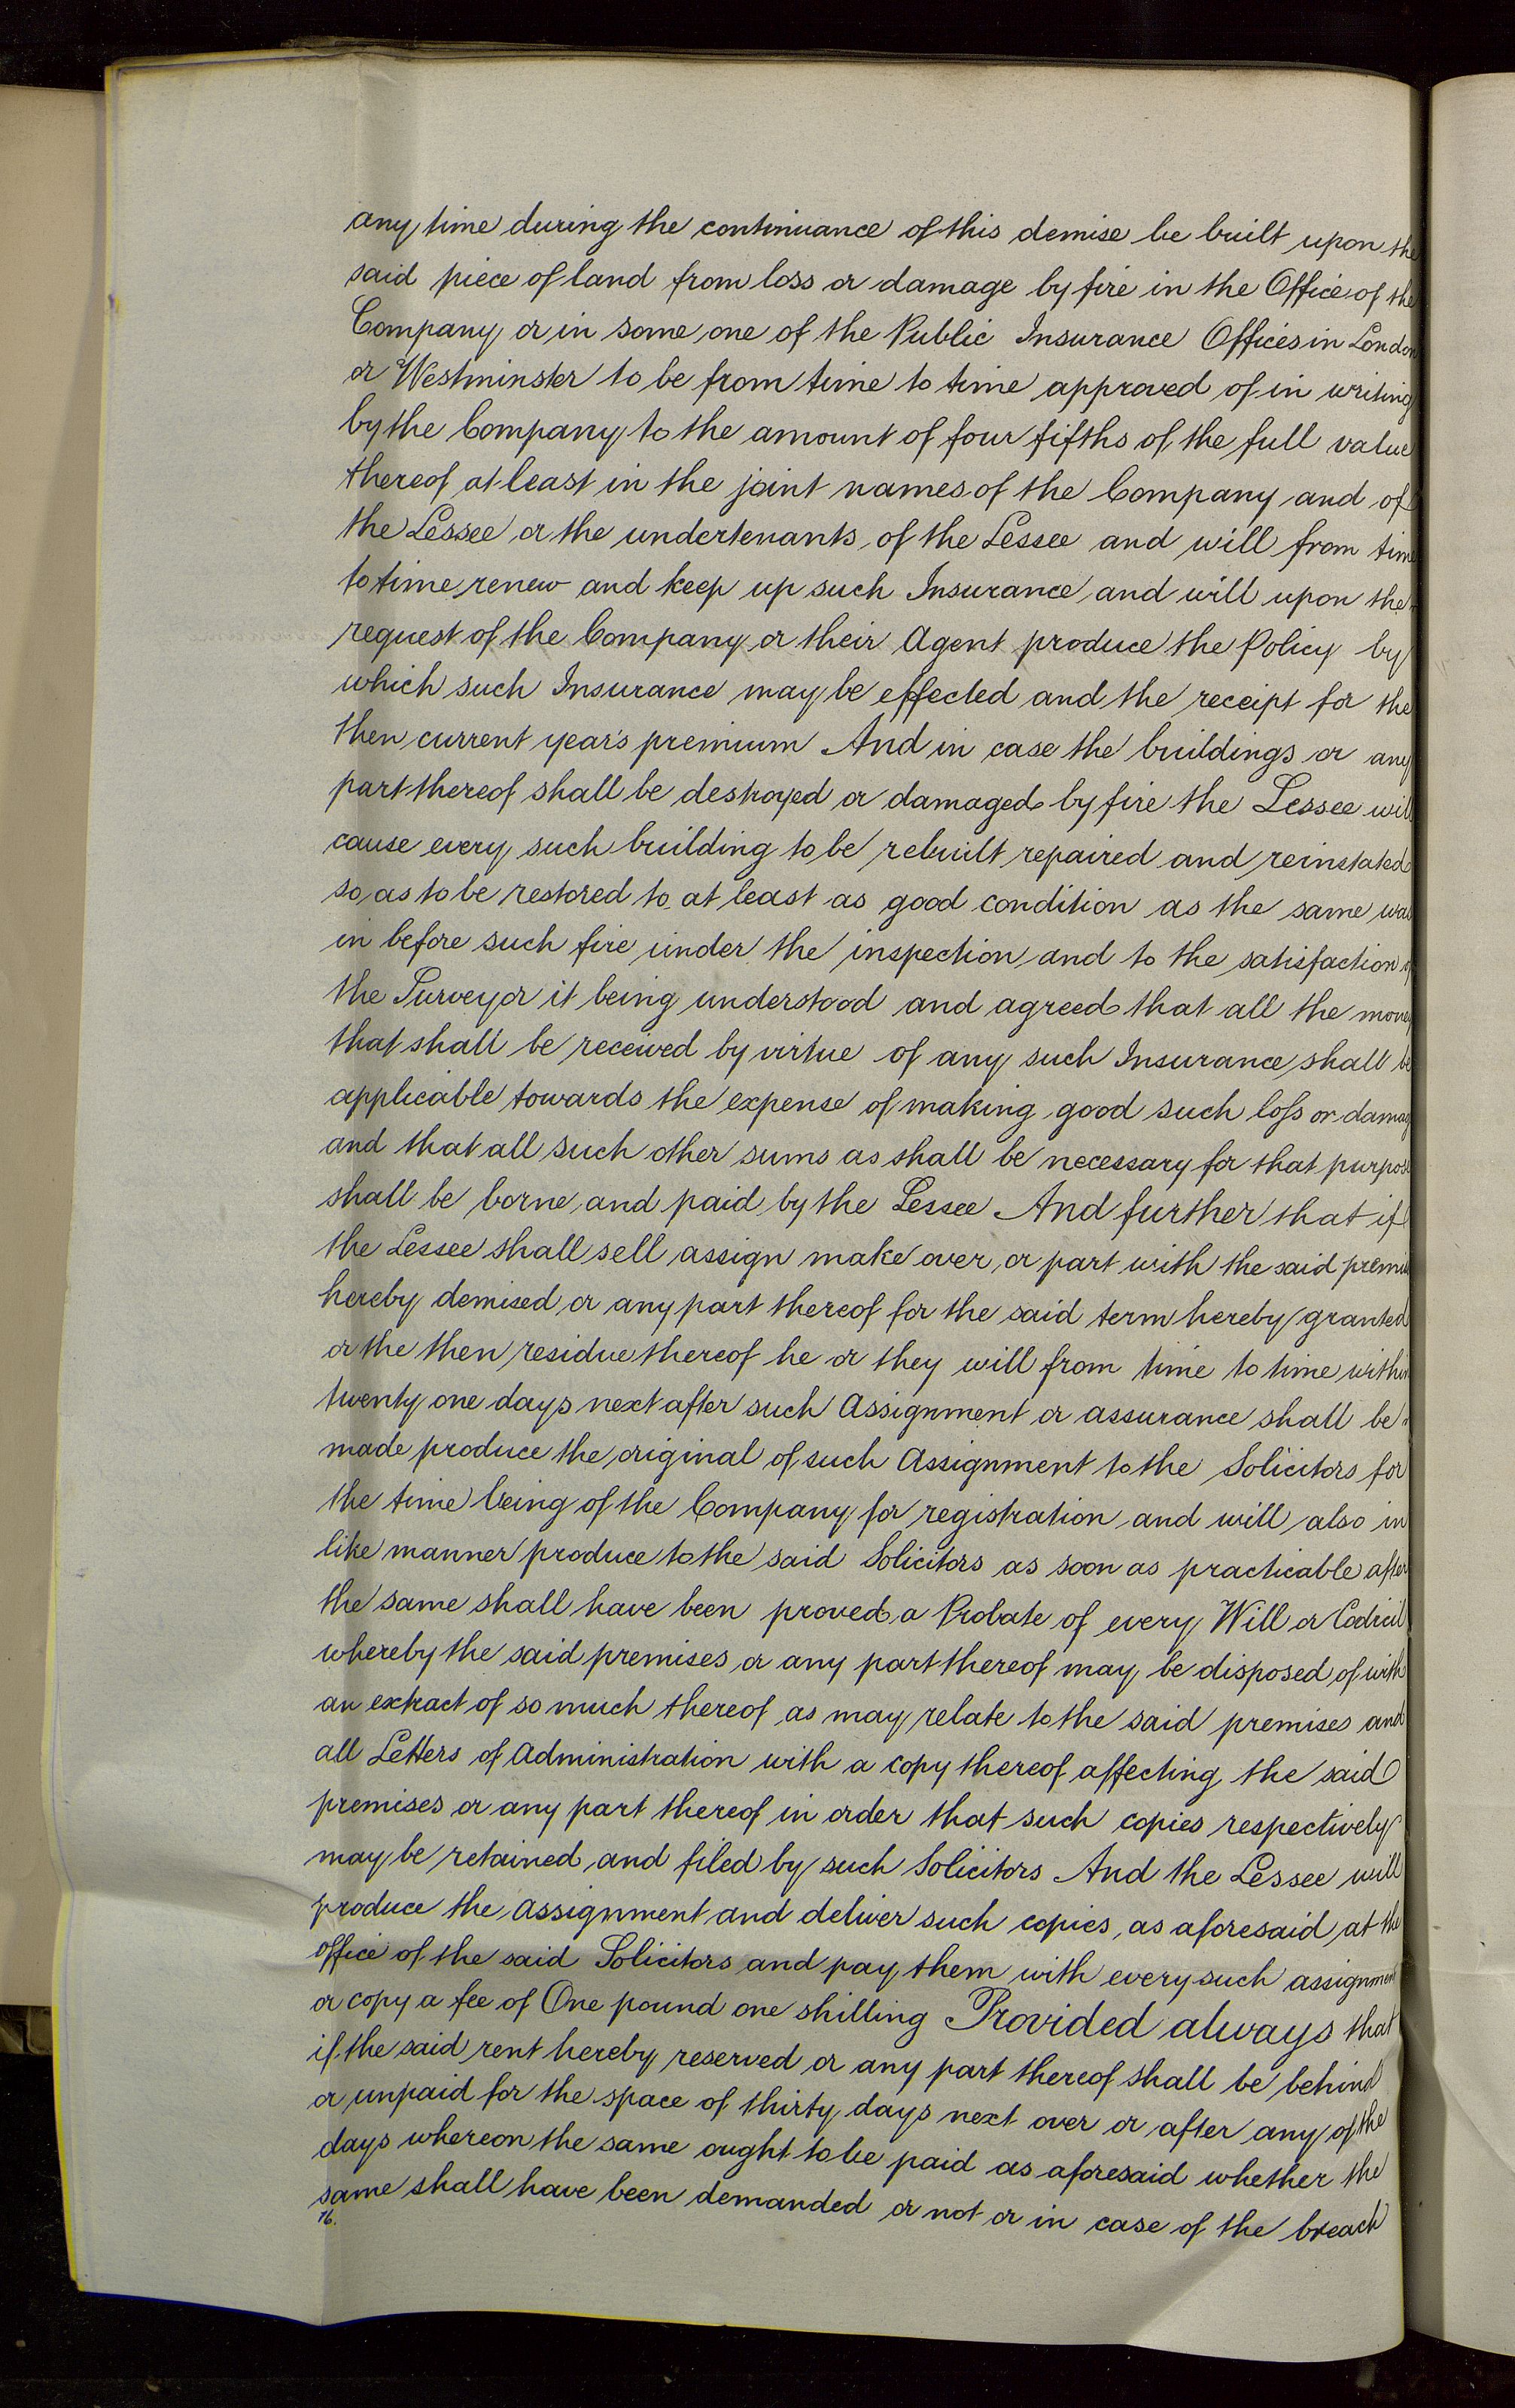 any time during the continuance of this demise be built upon the
said piece of land from loss or damage by fire in the Office of the
Company or in some one of the Public Insurance Offices in London
or Westminster to be from time to time approved of in writing
by the Company to the amount of four fifths of the full value
thereof at least in the joint names of the Company and of
the Lessee or the undertenants of the Lessee and will from time
to time renew and keep up such Insurance and will upon the
request of the Company or their Agent produce the Policy by
which such Insurance may be effected and the receipt for the
then current year's premium And in case the buildings or any
part thereof shall be destroyed or damaged by fire the Lessee will
cause every such building to be rebuilt repaired and reinstated
so as to be restored to at least as good condition as the same was
in before such fire under the inspection and to the satisfaction of
the Surveyor it being understood and agreed that all the money
that shall be received by virtue of any such Insurance shall be
applicable towards the expense of making good such loss or damag
and that all such other sums as shall be necessary for that purpose
shall be borne and paid by the Lessee And further that if
the Lessee shall sell assign make over or part with the said premis
hereby demised or any part thereof for the said term hereby granted
or the then residue thereof he or they will from time to time within
twenty one days next after such Assignment or assurance shall be
made produce the original of such Assignment to the Solicitors for
the time being of the Company for registration and will also in
like manner produce to the said Solicitors as soon as practicable after
the same shall have been proved a Probate of every Will or Codicil
whereby the said premises or any part thereof may be disposed of with
an extract of so much thereof as may relate to the said premises and
all Letters of Administration with a copy thereof affecting the said
premises or any part thereof in order that such copies respectively
may be retained and filed by such Solicitors And the Lessee will
produce the Assignment and deliver such copies as aforesaid at the
office of the said Solicitors and pay them with every such assignment
or copy a fee of One pound one shilling Provided always that
if the said rent hereby reserved or any part thereof shall be behind
or unpaid for the space of thirty days next over or after any of the
days whereon the same ought to be paid as aforesaid whether the
same shall have been demanded or not or in case of the breach
76.